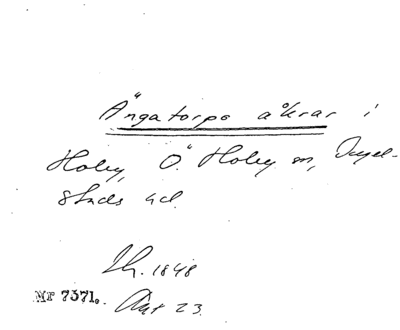 Ängatorps åkrar i
Hoby, Ö. Hoby sn, Ingel-
stads hd.
Lh. 1848
Nr 7371. Akt 23.